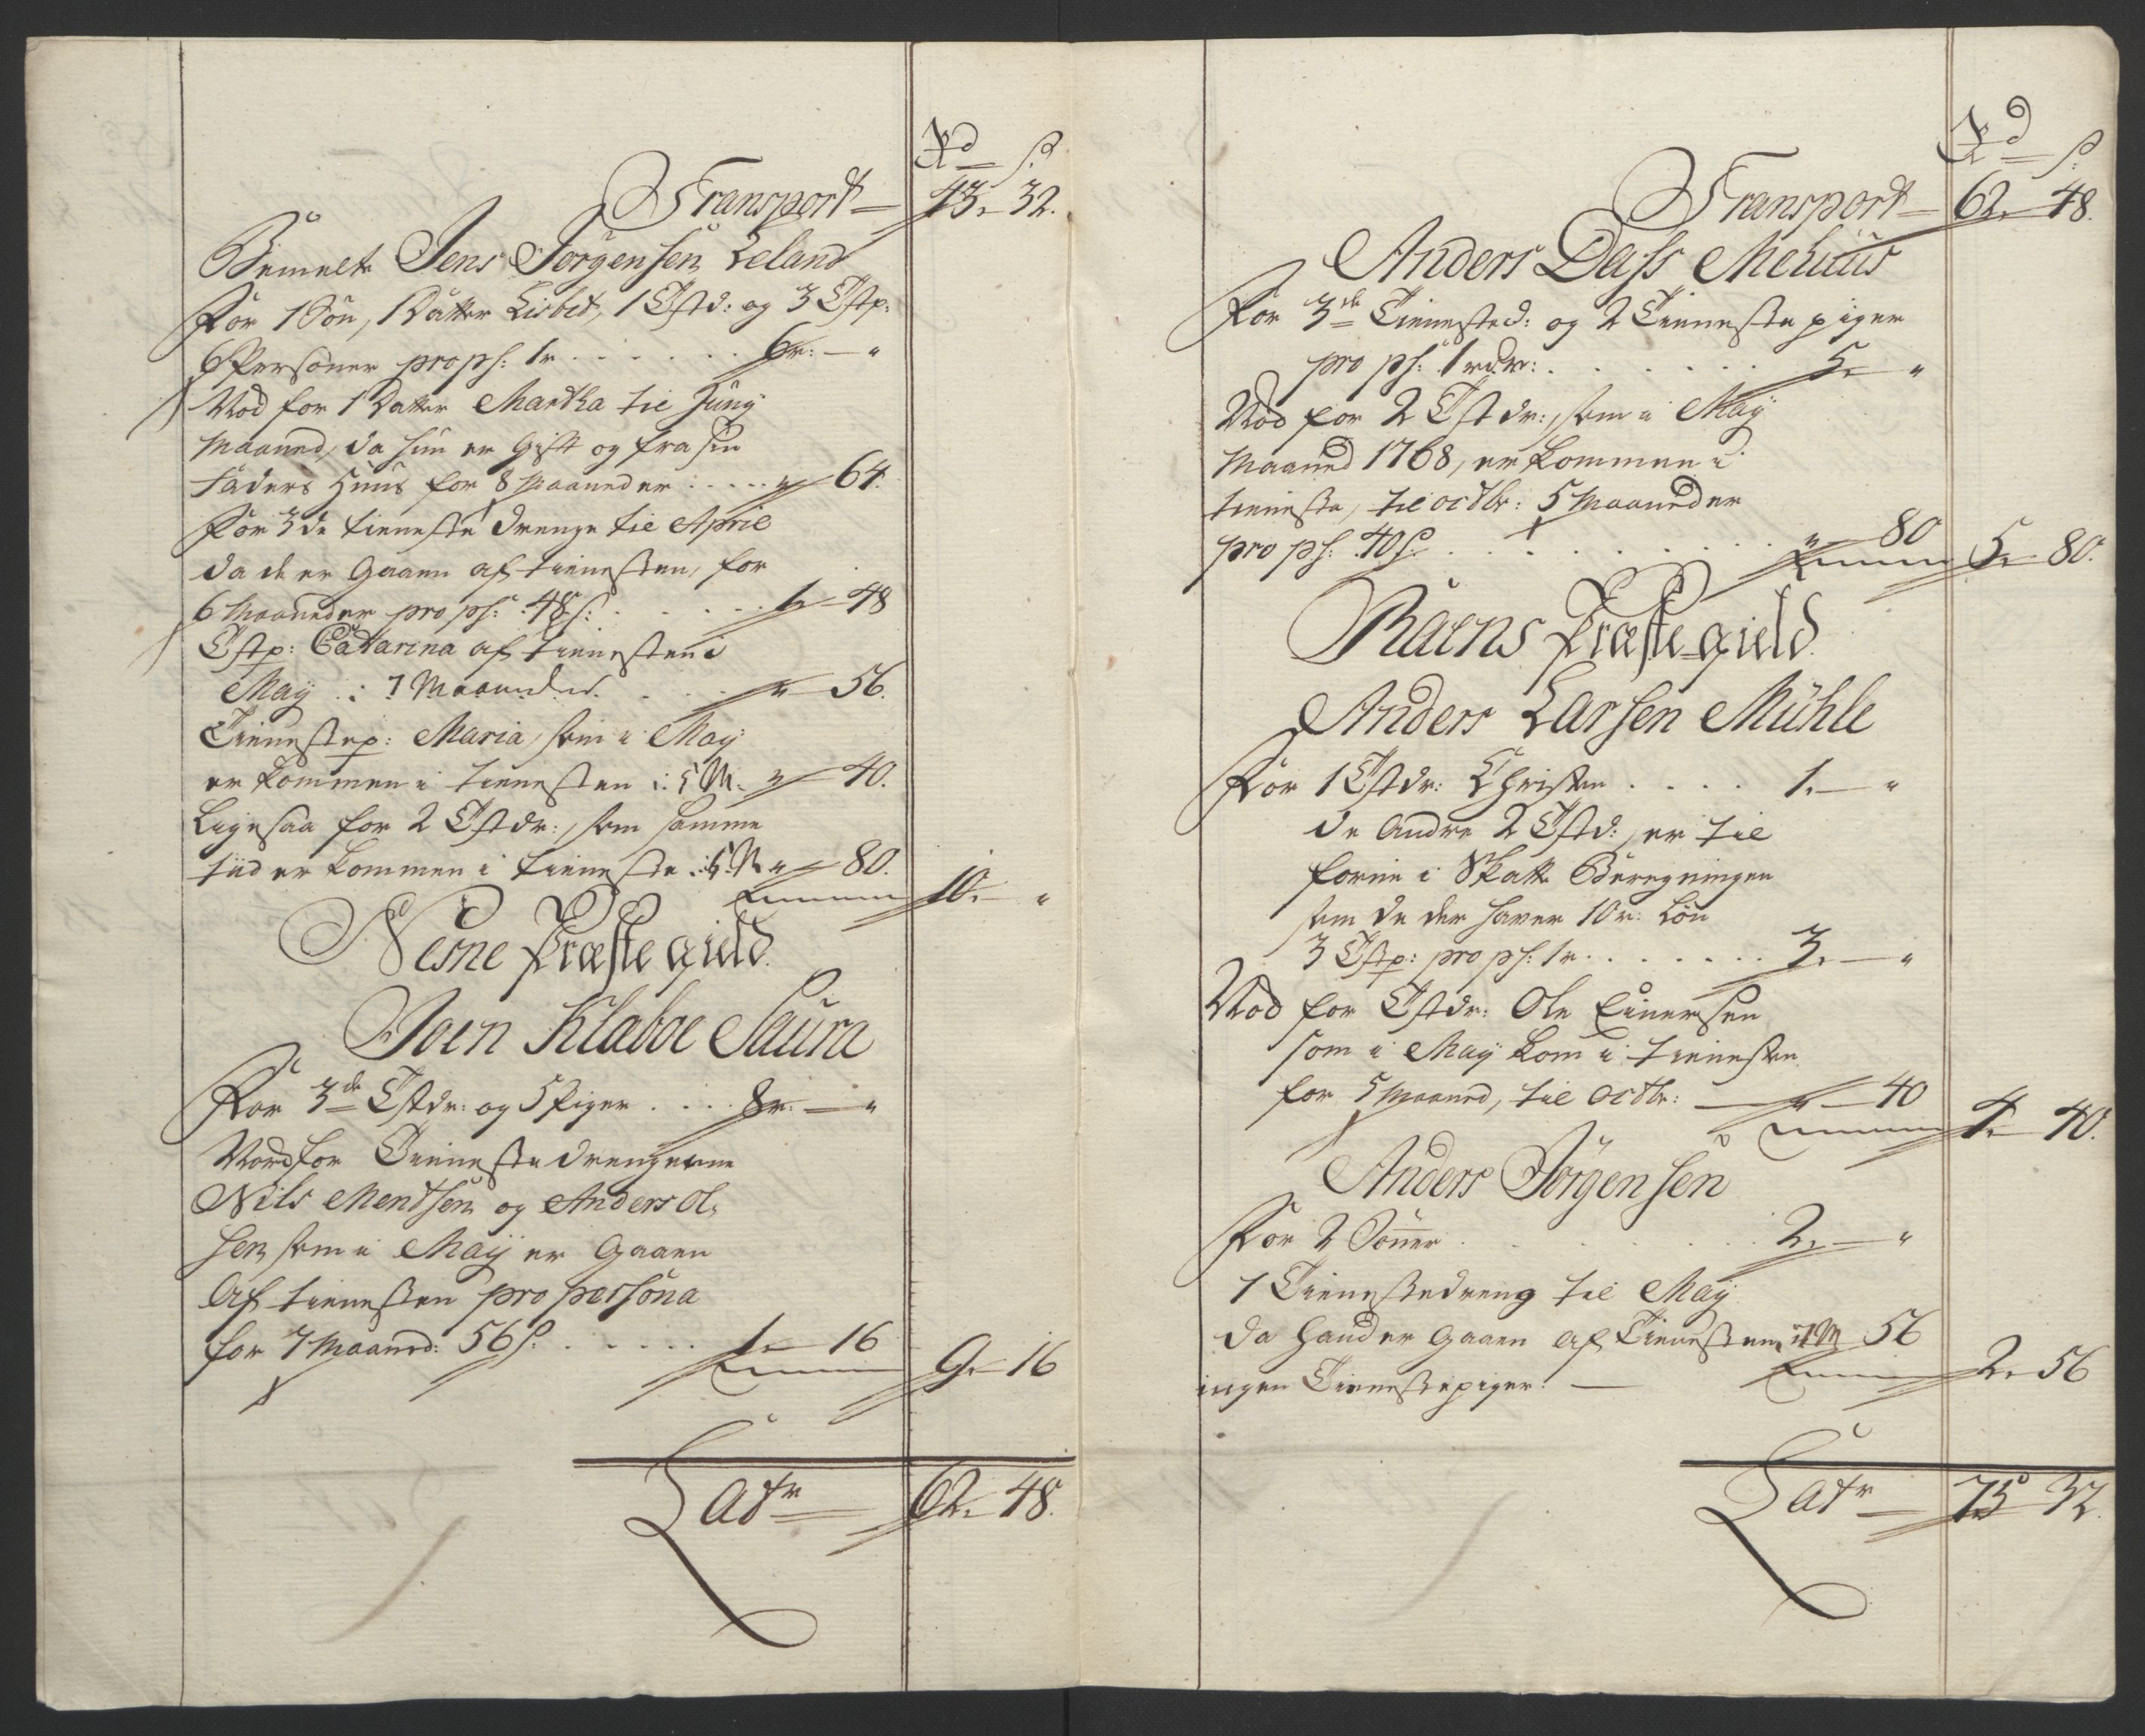 Rd s.
Transport — 43. 32.
Bemelte Jens Jörgensen Leland
For 1 Sön, 1 Datter Lisbet, 1 Tstd: og 3 Tstp:
6 Personer pro ps: 1r . . . . . . 6r: — "
Nod for 1 Datter Martha til Juny
Maaned, da hun er Gift og fra sin
Faders Huus for 8 Maaneder . . . . . " 64.
For 3de tieneste Drenge til April
da de er Gaaen af tienesten, for
6 Maaneder pro ps: 48 s: . . . . . . 1. 48
Tstp: Catarina af tienesten i
May . : 7 Maaneder . . . . " 56.
Tienestep: Maria, som i May
er kommen i tienesten i: 5 M. " 40.
Ligesaa for 2 Tstdr:, som samme
tiid er kommen i tieneste : 5 M " 80.
10. — "
Nesne Præstegield.
Joen Klaboe Saura
For 3de Tstdr: og 5 Piger . . . . 8r: — "
Nord for Tieneste drengerne
Nils Mentsen og Anders Ol,
sen som i May er Gaaen
Af tienesten pro persona
for 7 Maaned: 56 s. . . . . . 1. 16
9. 16
Latr 62. 48.
Rd s.
Transport — 62. 48.
Anders Dass Mehuus
For 3de Tienested: og 2 Tieneste piger
pro ps: 1 rdr: . . . . . . 5. "
Nod for 2 Tstdr:, som i May
Maaned 1768, er kommen i
tieneste, til octbr: 5 Maaneder
pro ps: 40 s. . . . . . . . . " 80
5. 80.
Raens Præstegield.
Anders Larsen Mühle
For 1 Tstdr: Christen . . . . 1. — "
de andre 2 Tstd:, er til
forne i Skatte Beregningen
som de der haver 10r: Lön
3 Tstp: pro ps: 1r . . . . . . . 3. — "
Nod for Tstdr: Ole Einersen
som i May kom i tienesten
for 5 Maaned, til Octbr: — " 40
4. 40.
Anders Jörgensen
For 2 Sönner . . . . . . . 2. — "
1 Tienestedreng til May
da hand er gaaen af Tienesten i 7 M 56
2. 56
ingen Tienestepiger: —
Latr — 75 32.